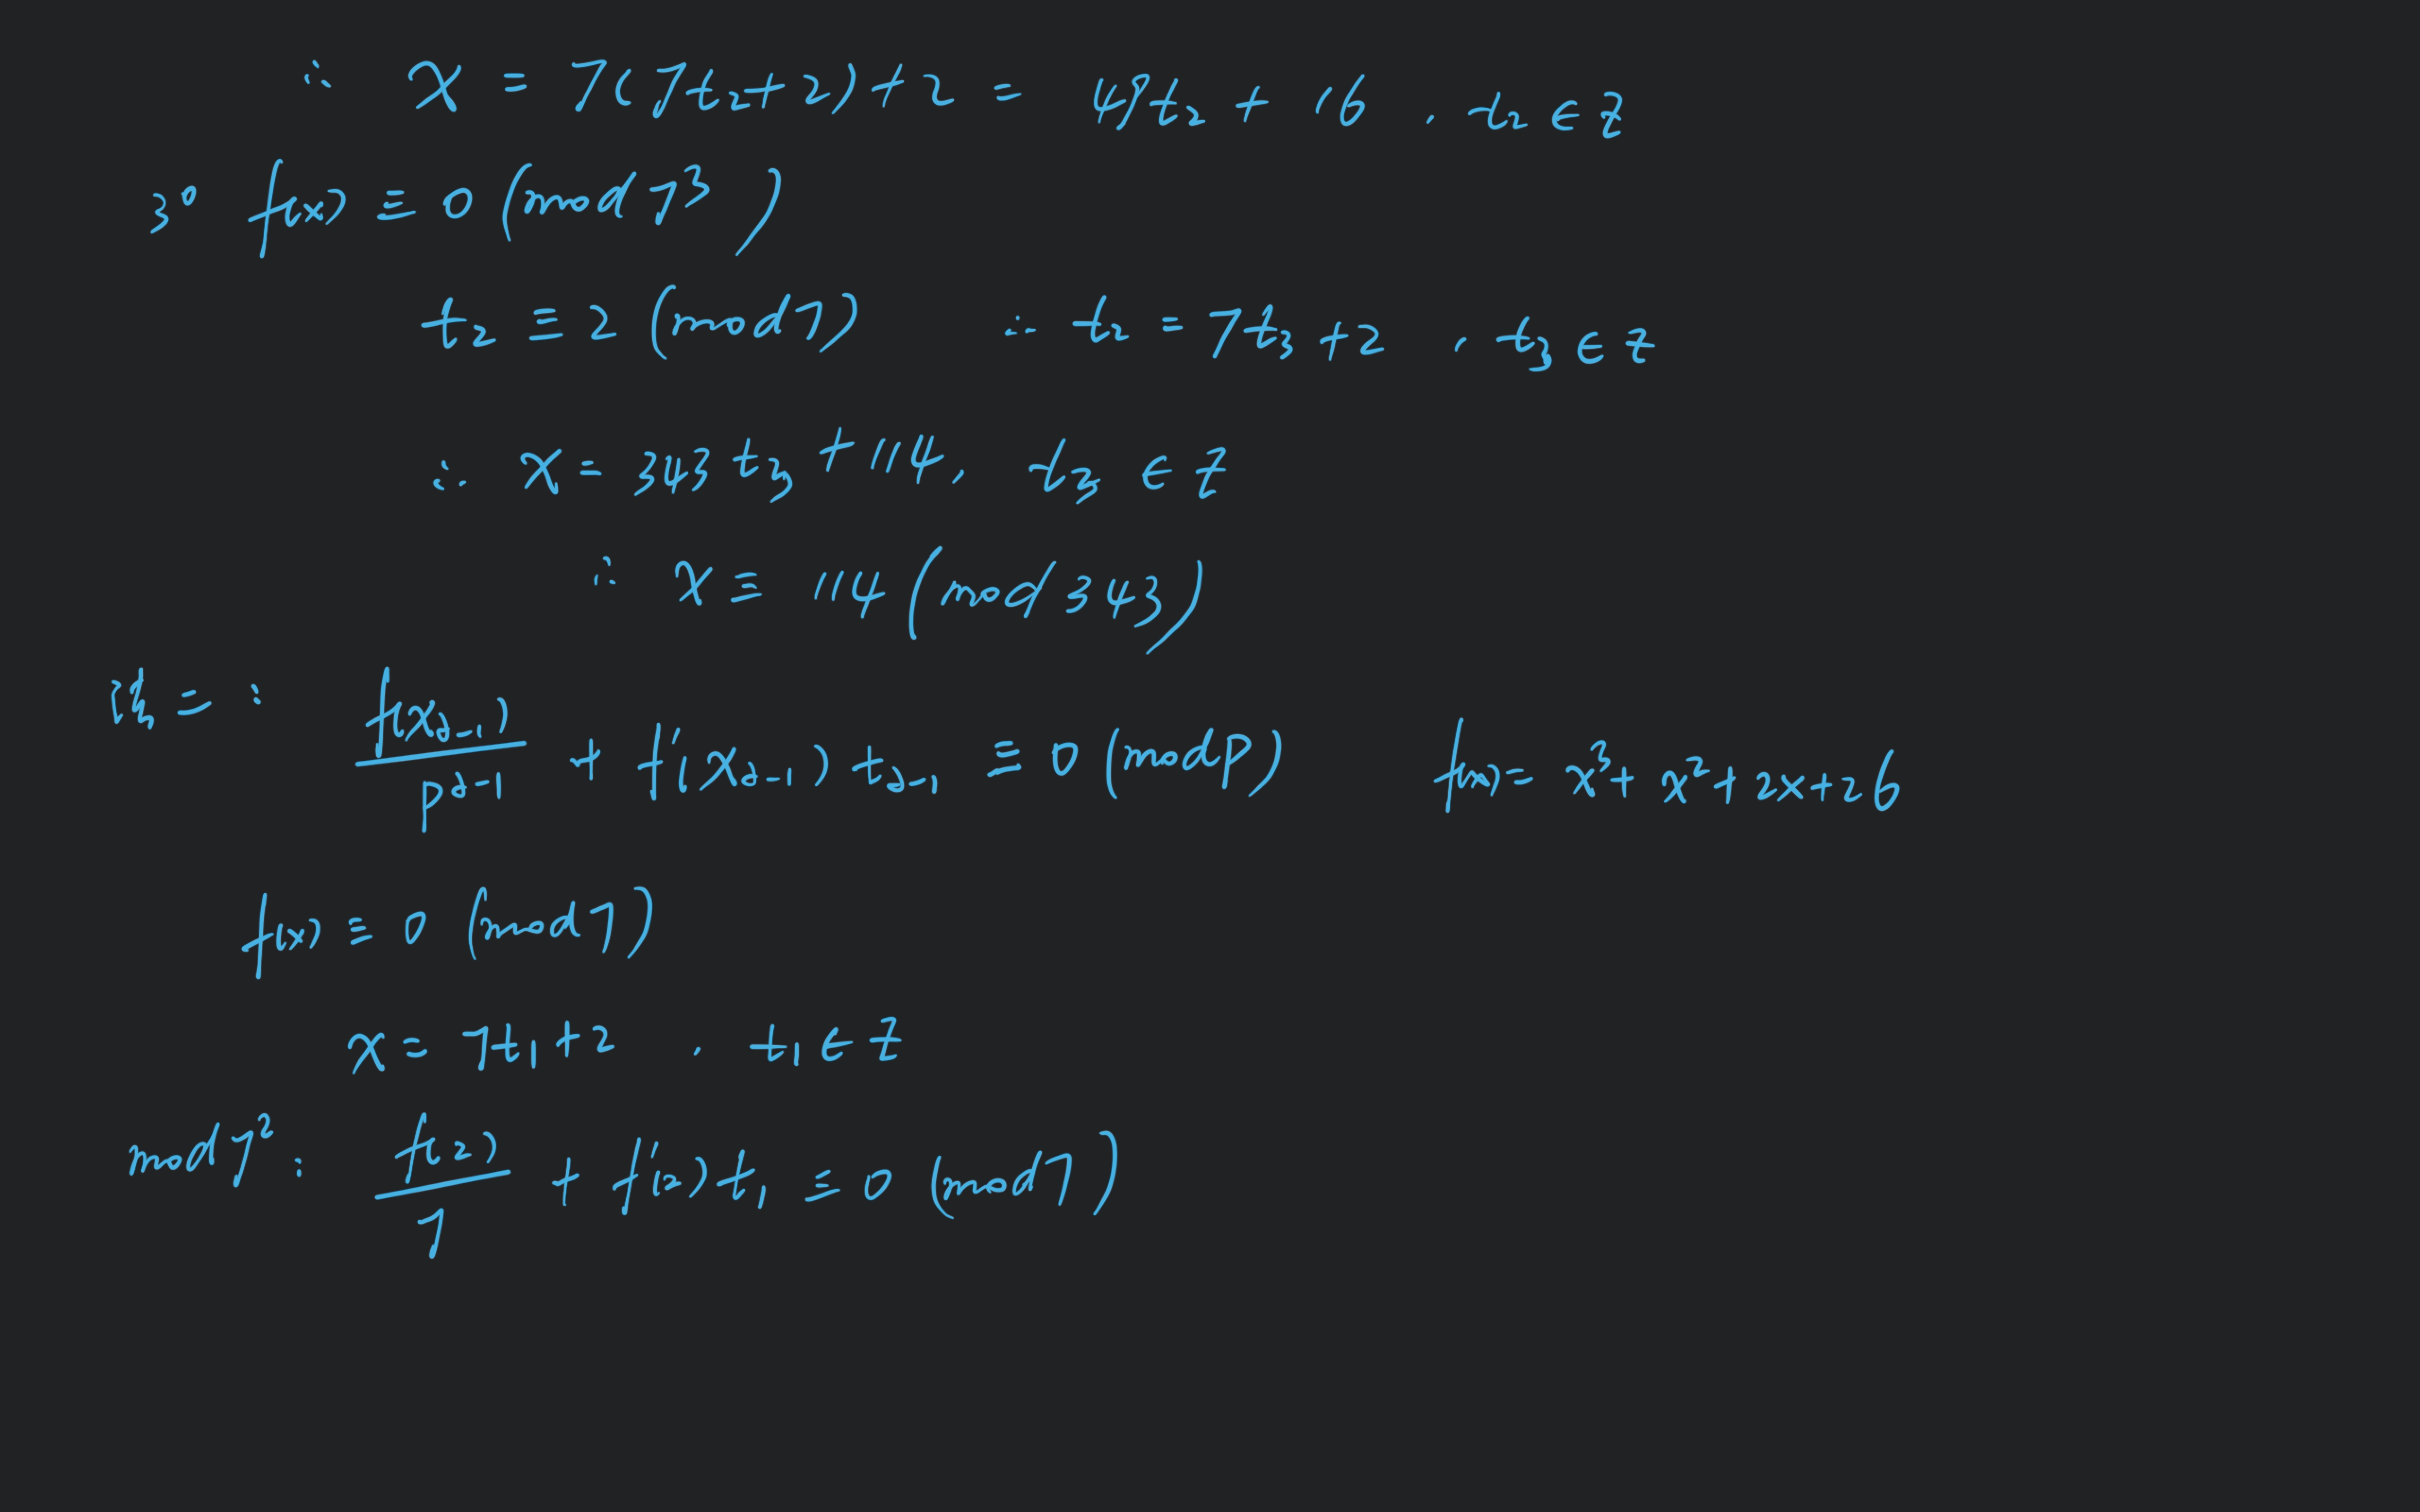 ∴ x = 7(7t₂+2)+2 = 49t₂ + 16 , t₂ ∈ Z
3° f(x) ≡ 0 (mod 7³)
t₂ ≡ 2 (mod 7) ∴ t₂ = 7t₃ +2 , t₃ ∈ Z
∴ x = 343t₃ + 114, t₃ ∈ Z
∴ x ≡ 114 (mod 343)
法二: f(x₂₋₁)/p²⁻¹ + f'(x₂₋₁) t₂₋₁ ≡ 0 (mod p) f(x) = x³+ x²+2x+26
f(x) ≡ 0 (mod 7)
x = 7t₁+2 , t₁ ∈ Z
mod 7² : f(2)/7 + f'(2) t₁ ≡ 0 (mod 7)